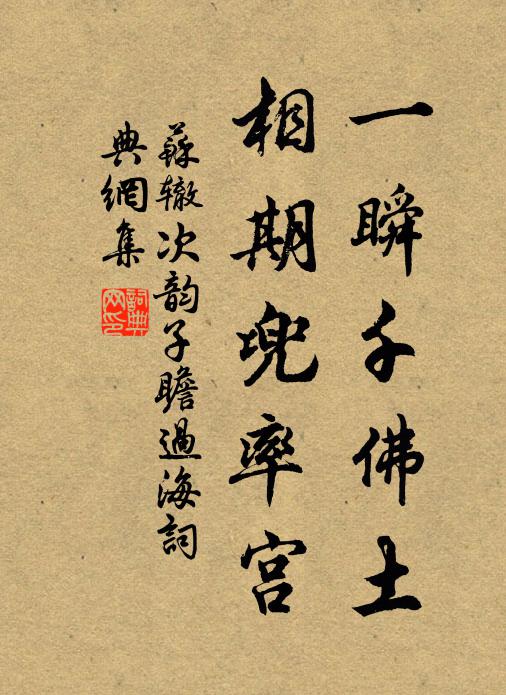 一瞬千佛土
相期兜率宫
蘇辙次韵子瞻過海詞
典網集
詞典網印